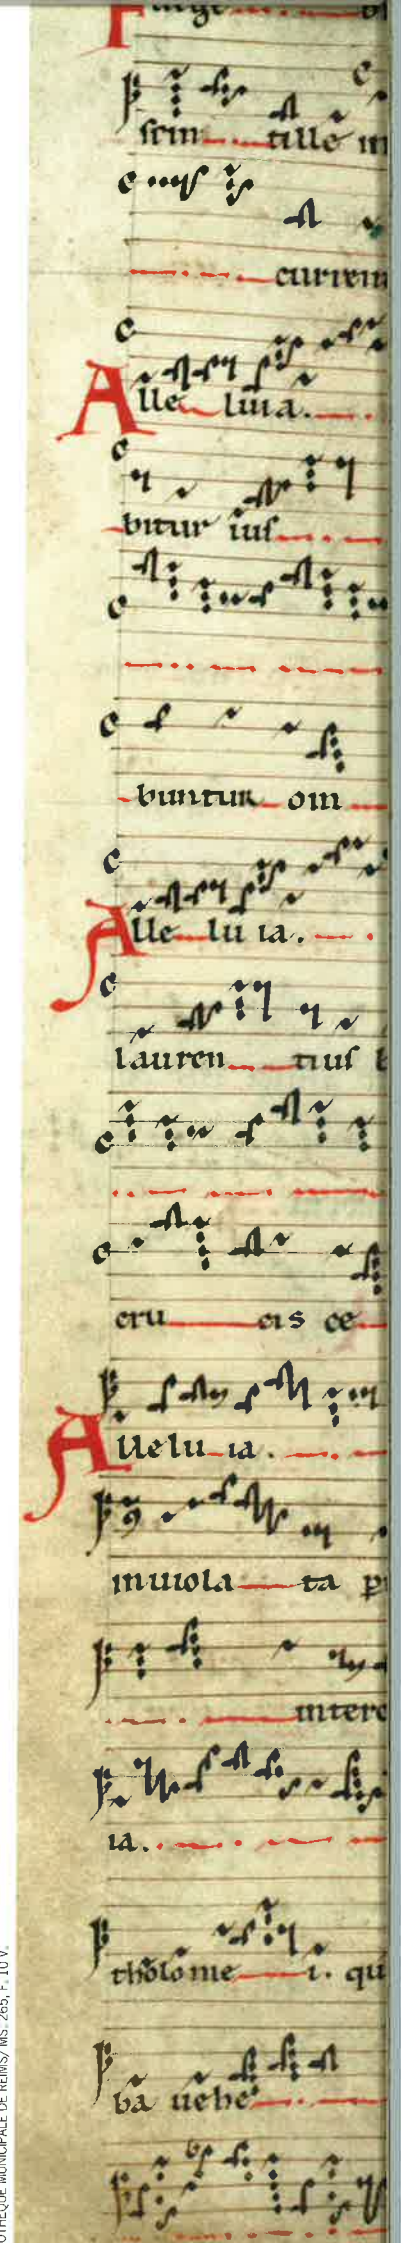 scin tille in
currem
Alle luia.
bitur ius
buntur om
Alle lu ia.
lauren tius
cru cis ce
Allelu ia.
inuiola ta p
interc
ia.
tholome i. qu
ba uehe
OTHÈQUE MUNICIPALE DE REIMS/ MS. 265, F. 10 V.